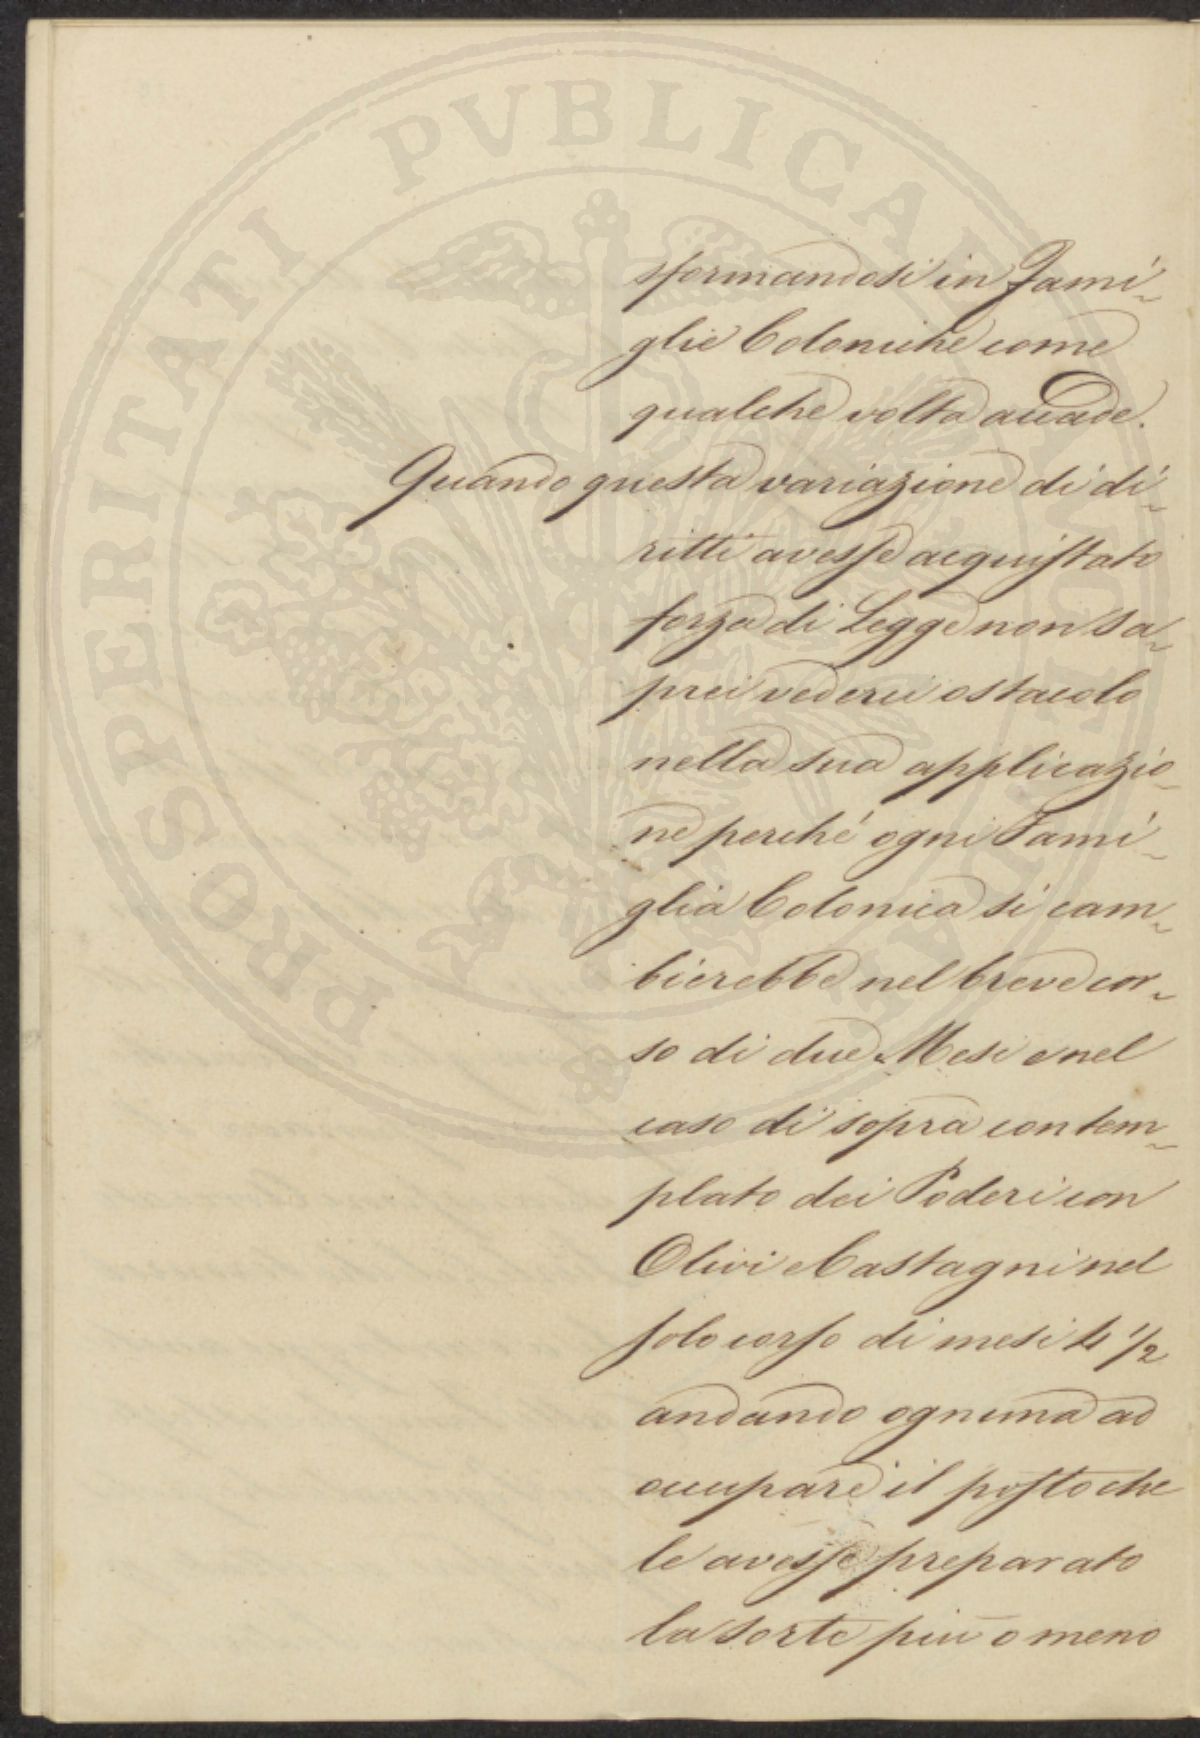 sformandosi in Fami-
glie Coloniche come
qualche volta accade.
Quando questa variazione di di-
ritti avesse acquistato
forza di Legge non sa-
prei vederci ostacolo
nella sua applicazio-
ne perché ogni Fami-
glia Colonica si cam-
bierebbe nel breve cor-
so di due Mesi e nel
caso di sopra contem-
plato dei Poderi con
Olivi e Castagni nel
solo corso di mesi 4 1/2
andando ognuna ad
occupare il posto che
le avesse preparato
la sorte più o meno
PROSPERITATI PVBLICAE